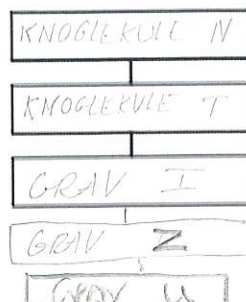 KNOGLEKULE N
KNOGLEKULE T
GRAV I
GRAV Z
GRAV U